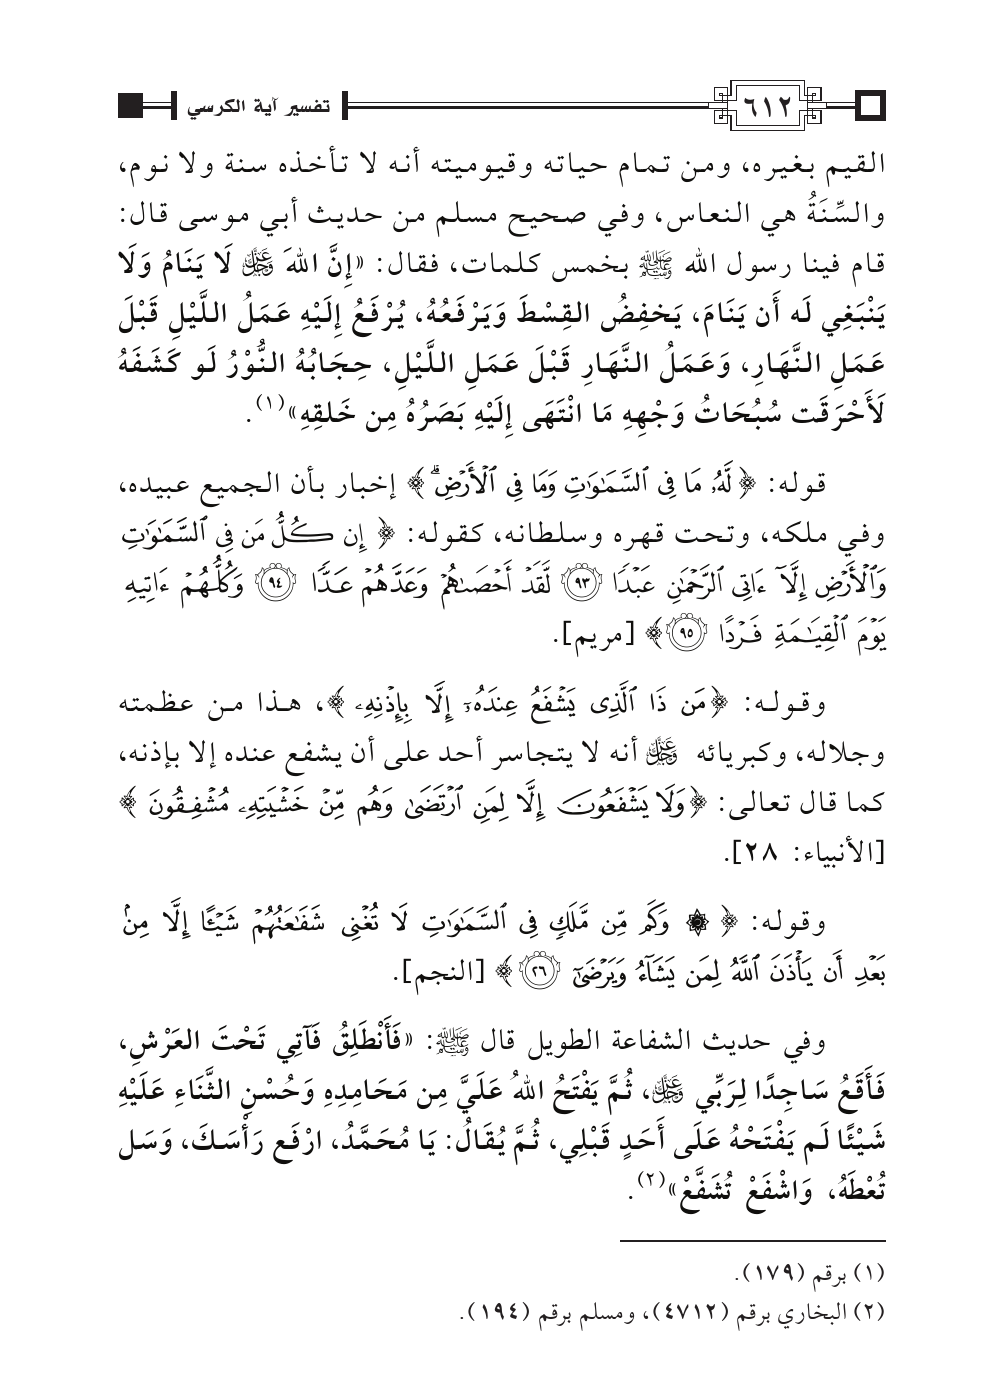 ٦١٢
تفسير آية الكرسي
القيم بغيره، ومن تمام حياته وقيوميته أنه لا تأخذه سنة ولا نوم،
والسِّنَةُ هي النعاس، وفي صحيح مسلم من حديث أبي موسى قال:
قام فينا رسول الله ﷺ بخمس كلمات، فقال: «إِنَّ اللهَ عَزَّ وَجَلَّ لَا يَنَامُ وَلَا
يَنْبَغِي لَه أَن يَنَامَ، يَخفِضُ القِسْطَ وَيَرْفَعُهُ، يُرْفَعُ إِلَيْهِ عَمَلُ اللَّيْلِ قَبْلَ
عَمَلِ النَّهَارِ، وَعَمَلُ النَّهَارِ قَبْلَ عَمَلِ اللَّيْلِ، حِجَابُهُ النُّوْرُ لَو كَشَفَهُ
لَأَحْرَقَت سُبُحَاتُ وَجْهِهِ مَا انْتَهَى إِلَيْهِ بَصَرُهُ مِن خَلقِهِ»(١).
قوله: ﴿لَّهُۥ مَا فِي ٱلسَّمَٰوَٰتِ وَمَا فِي ٱلْأَرْضِۗ﴾ إخبار بأن الجميع عبيده،
وفي ملكه، وتحت قهره وسلطانه، كقوله: ﴿إِن كُلُّ مَن فِي ٱلسَّمَٰوَٰتِ
وَٱلْأَرْضِ إِلَّآ ءَاتِي ٱلرَّحْمَٰنِ عَبْدًا ٩٣ لَّقَدْ أَحْصَىٰهُمْ وَعَدَّهُمْ عَدًّا ٩٤ وَكُلُّهُمْ ءَاتِيهِ
يَوْمَ ٱلْقِيَٰمَةِ فَرْدًا ٩٥﴾ [مريم].
وقوله: ﴿مَن ذَا ٱلَّذِي يَشْفَعُ عِندَهُۥٓ إِلَّا بِإِذْنِهِۦ﴾، هذا من عظمته
وجلاله، وكبريائه عَزَّ وَجَلَّ أنه لا يتجاسر أحد على أن يشفع عنده إلا بإذنه،
كما قال تعالى: ﴿وَلَا يَشْفَعُونَ إِلَّا لِمَنِ ٱرْتَضَىٰ وَهُم مِّنْ خَشْيَتِهِۦ مُشْفِقُونَ﴾
[الأنبياء: ٢٨].
وقوله: ﴿۞ وَكَم مِّن مَّلَكٍ فِي ٱلسَّمَٰوَٰتِ لَا تُغْنِي شَفَٰعَتُهُمْ شَيْـًٔا إِلَّا مِنۢ
بَعْدِ أَن يَأْذَنَ ٱللَّهُ لِمَن يَشَآءُ وَيَرْضَىٰٓ ٢٦﴾ [النجم].
وفي حديث الشفاعة الطويل قال ﷺ: «فَأَنْطَلِقُ فَآتِي تَحْتَ العَرْشِ،
فَأَقَعُ سَاجِدًا لِرَبِّي عَزَّ وَجَلَّ، ثُمَّ يَفْتَحُ اللهُ عَلَيَّ مِن مَحَامِدِهِ وَحُسْنِ الثَّنَاءِ عَلَيْهِ
شَيْئًا لَم يَفْتَحْهُ عَلَى أَحَدٍ قَبْلِي، ثُمَّ يُقَالُ: يَا مُحَمَّدُ، ارْفَع رَأْسَكَ، وَسَل
تُعْطَهُ، وَاشْفَعْ تُشَفَّعْ»(٢).
(١) برقم (١٧٩).
(٢) البخاري برقم (٤٧١٢)، ومسلم برقم (١٩٤).